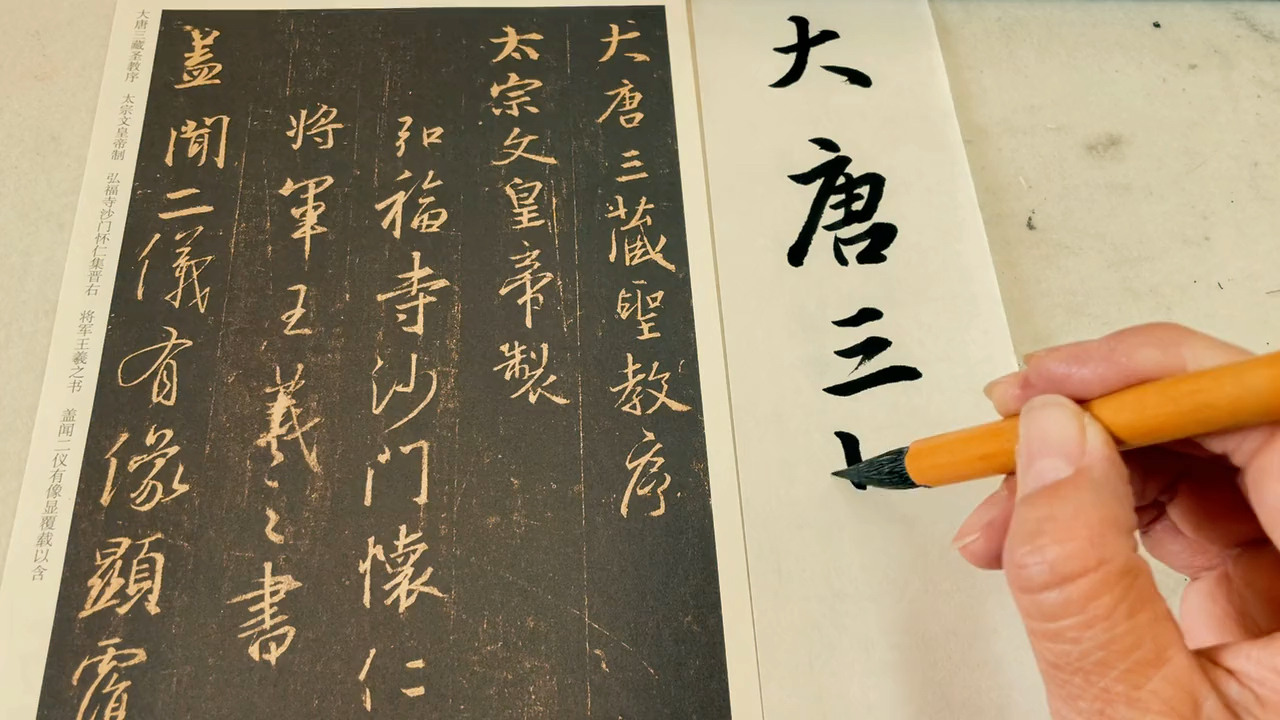 大唐三
大唐三藏聖教序
太宗文皇帝製
弘福寺沙門懷仁
將軍王羲之書
蓋聞二儀有像顯覆
大唐三藏圣教序 太宗文皇帝制 弘福寺沙门怀仁集晋右 将军王羲之书 盖闻二仪有像显覆载以含